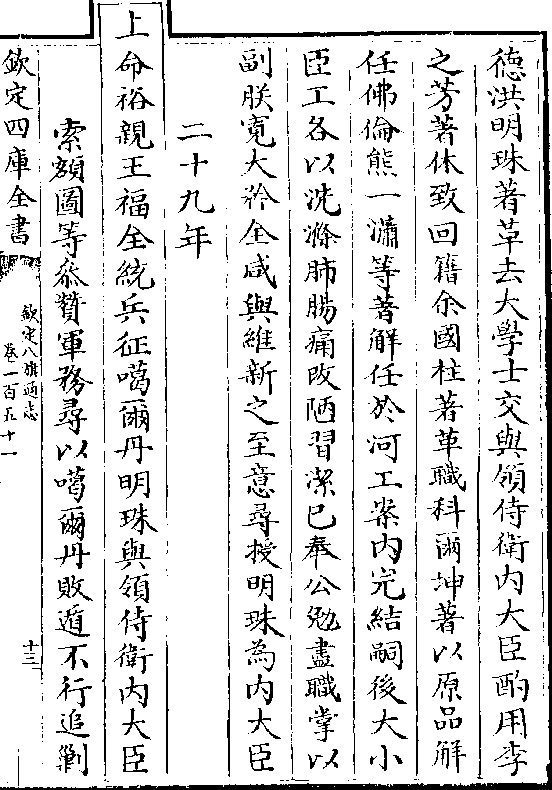 徳洪明珠著革去大學士交與領侍衛内大臣酌用李
之芳著休致回籍余國柱著革職科爾坤著以原品解
任佛倫熊一瀟等著解任於河工案内完結嗣後大小
臣工各以洗滌肺腸痛改陋習潔已奉公勉盡職掌以
副朕寛大矜全咸與維新之至意尋授明珠為内大臣
二十九年
上命裕親王福全統兵征噶爾丹明珠與領侍衛内大臣
索額圖等叅贊軍務尋以噶爾丹敗遁不行追剿
欽定四庫全書
欽定八旗通志
卷一百五十一
十三